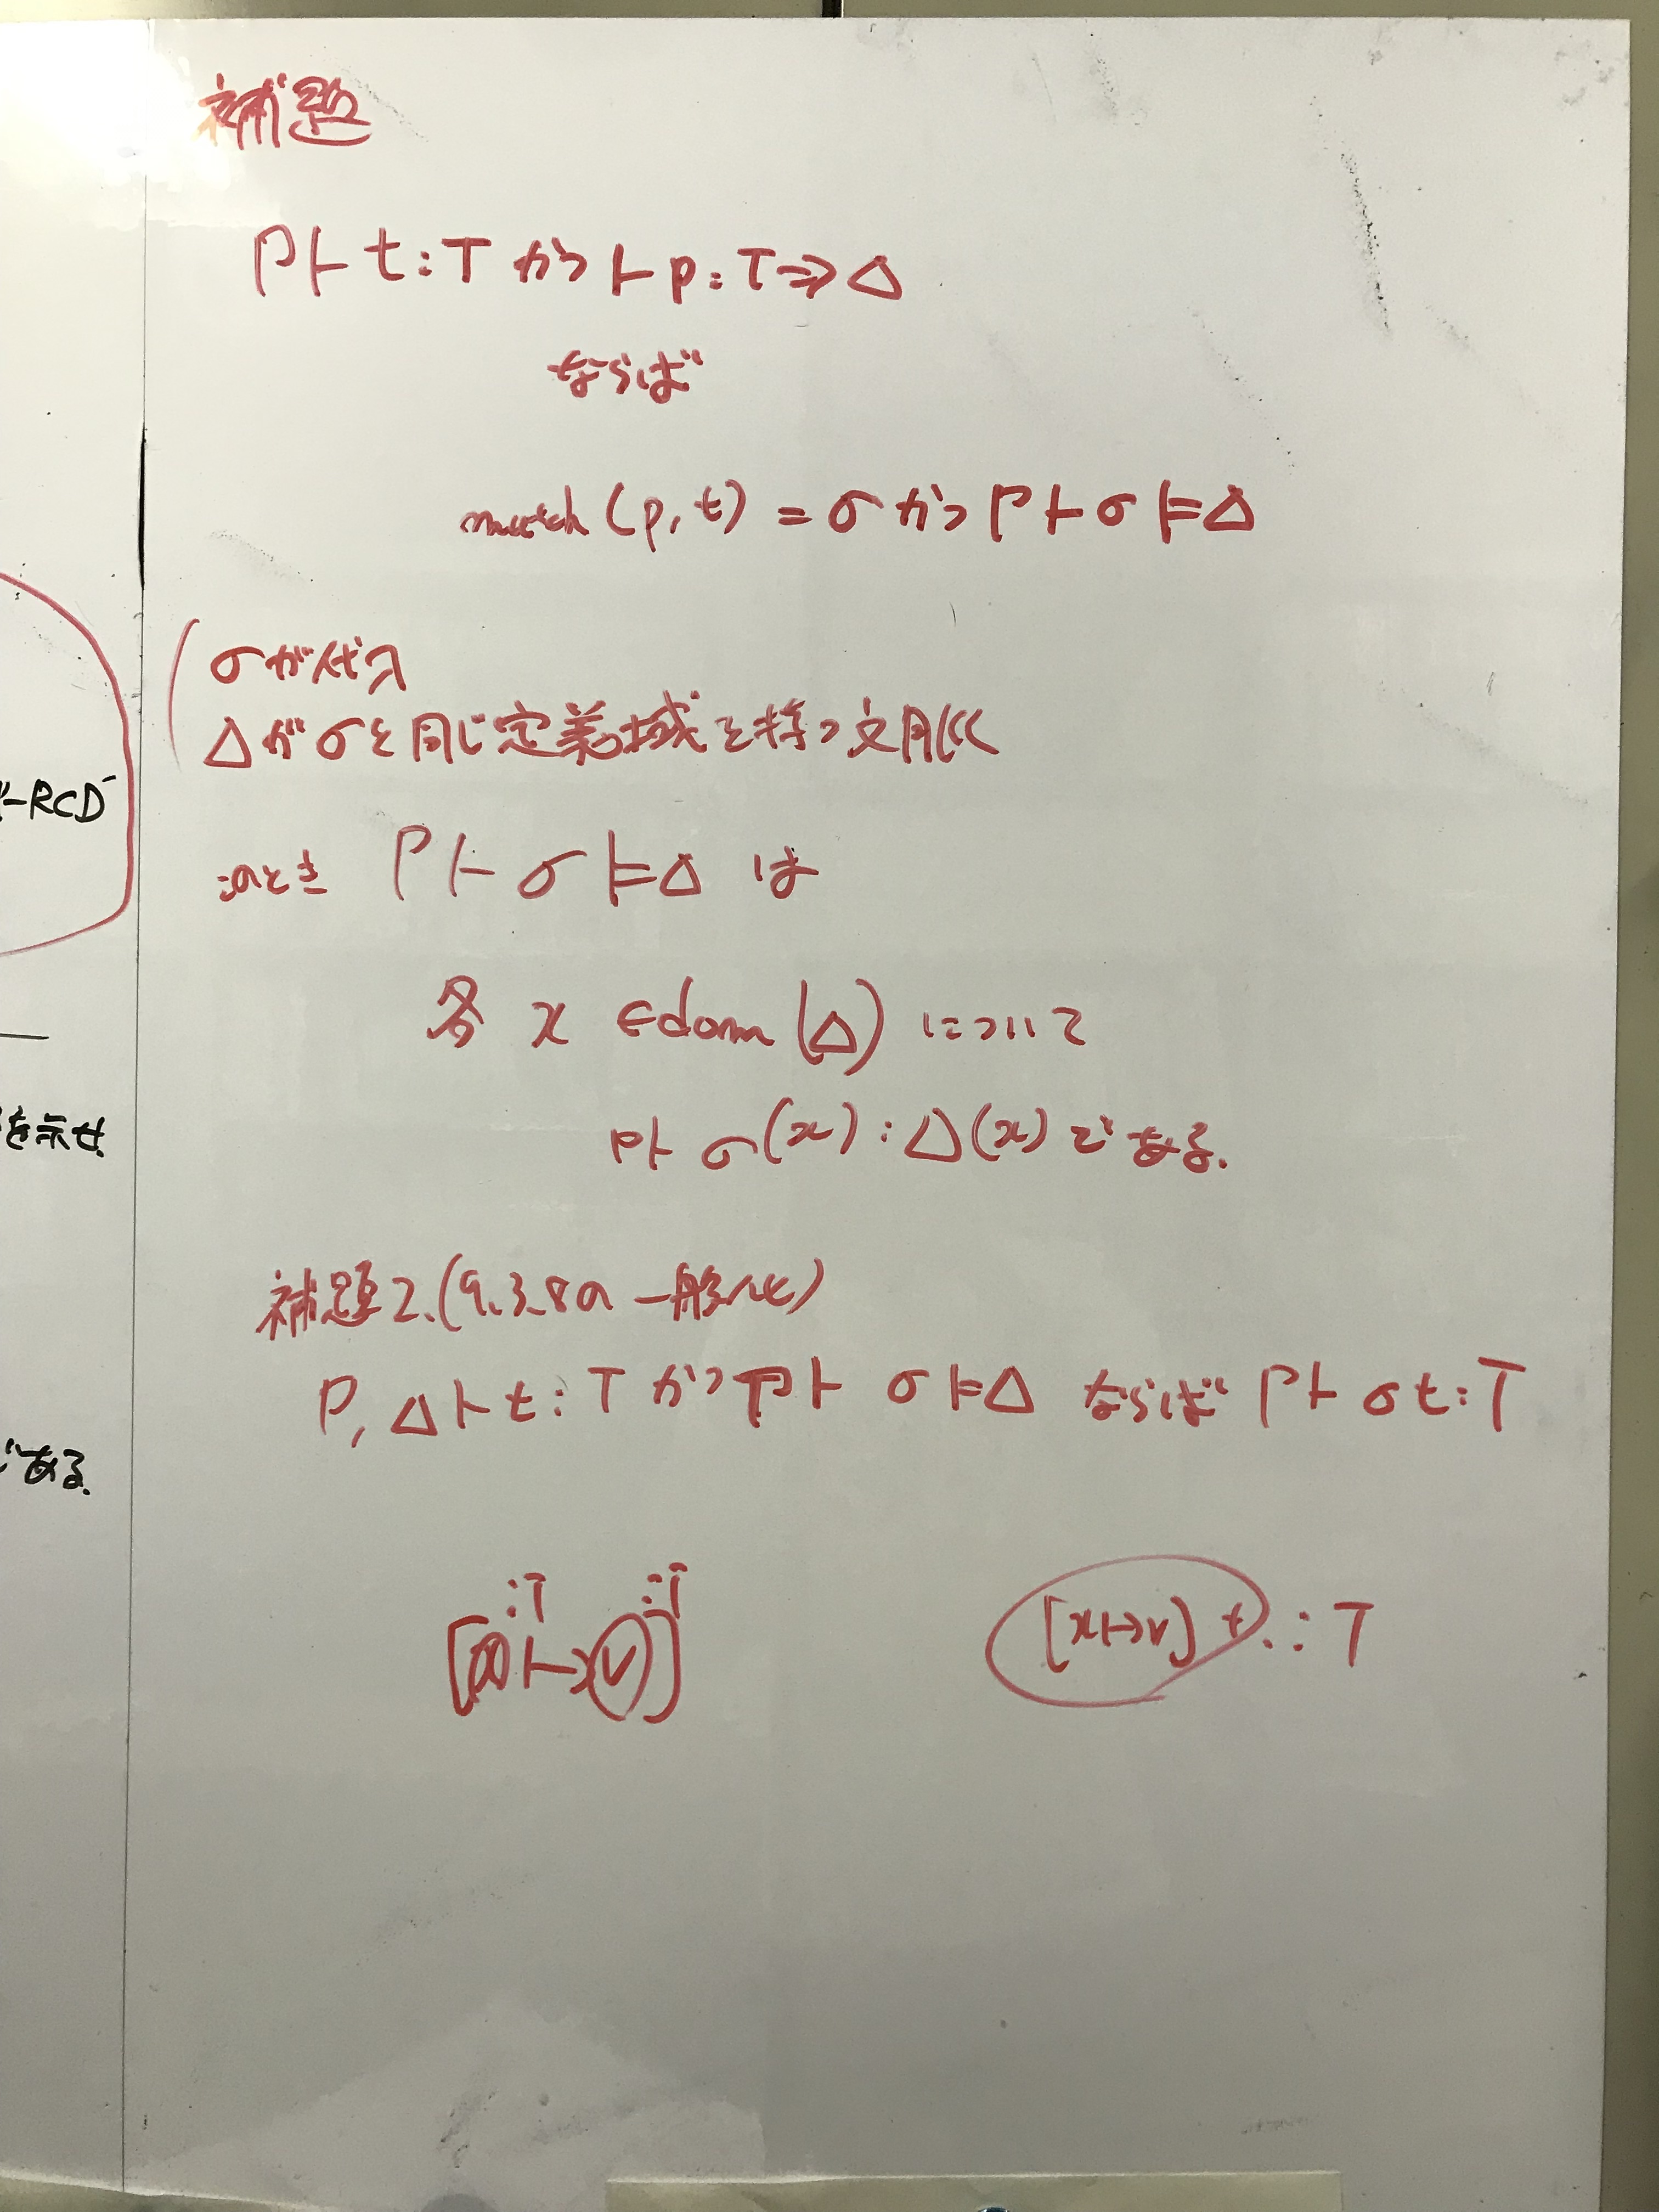 補題
Γ⊢ t:T かつ ⊢ p:T⇒Δ
ならば
match(p,t) = σ かつ Γ⊢σ⊨Δ
σが代入
Δがσと同じ定義域を持つ文脈
-RCD
このとき Γ⊢σ⊨Δ は
各 x ∈dom(Δ) について
を示せ
Γ⊢ σ(x):Δ(x) である.
補題2.(9.3.8の一般化)
Γ,Δ⊢t:T かつ Γ⊢ σ⊨Δ ならば Γ⊢σt:T
である.
:T :T
[x↦v]
[x↦v]t : T